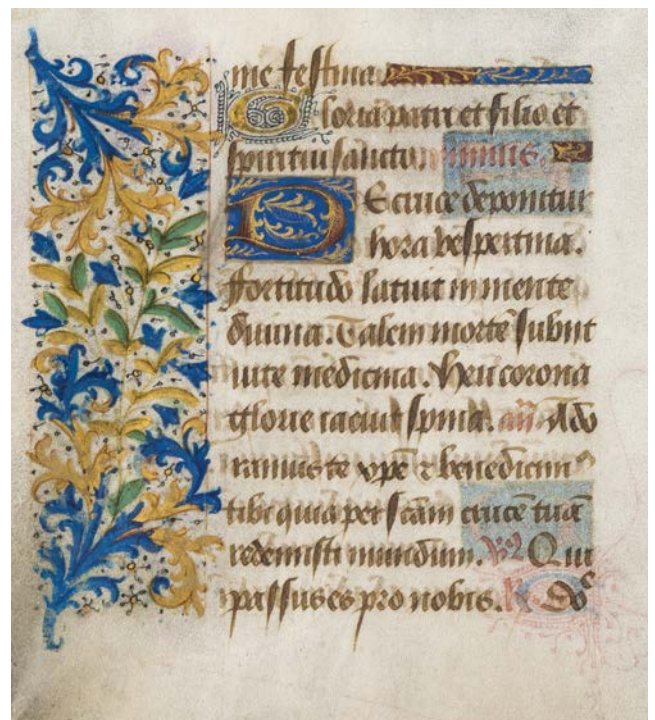 me festina.
Gloria patri et filio et
spiritui sancto. ymnus.
De cruce deponitur
hora vespertina.
ffortitudo latuit in mente
diuina. Talem mortē subiit
uite medicina. Heu corona
glorie iacuit spina. añ Ado
ramus te xpē ⁊ benedicim⁹
tibi quia per scām crucē tuā
redemisti mundum. Qui
passus es pro nobis. Do